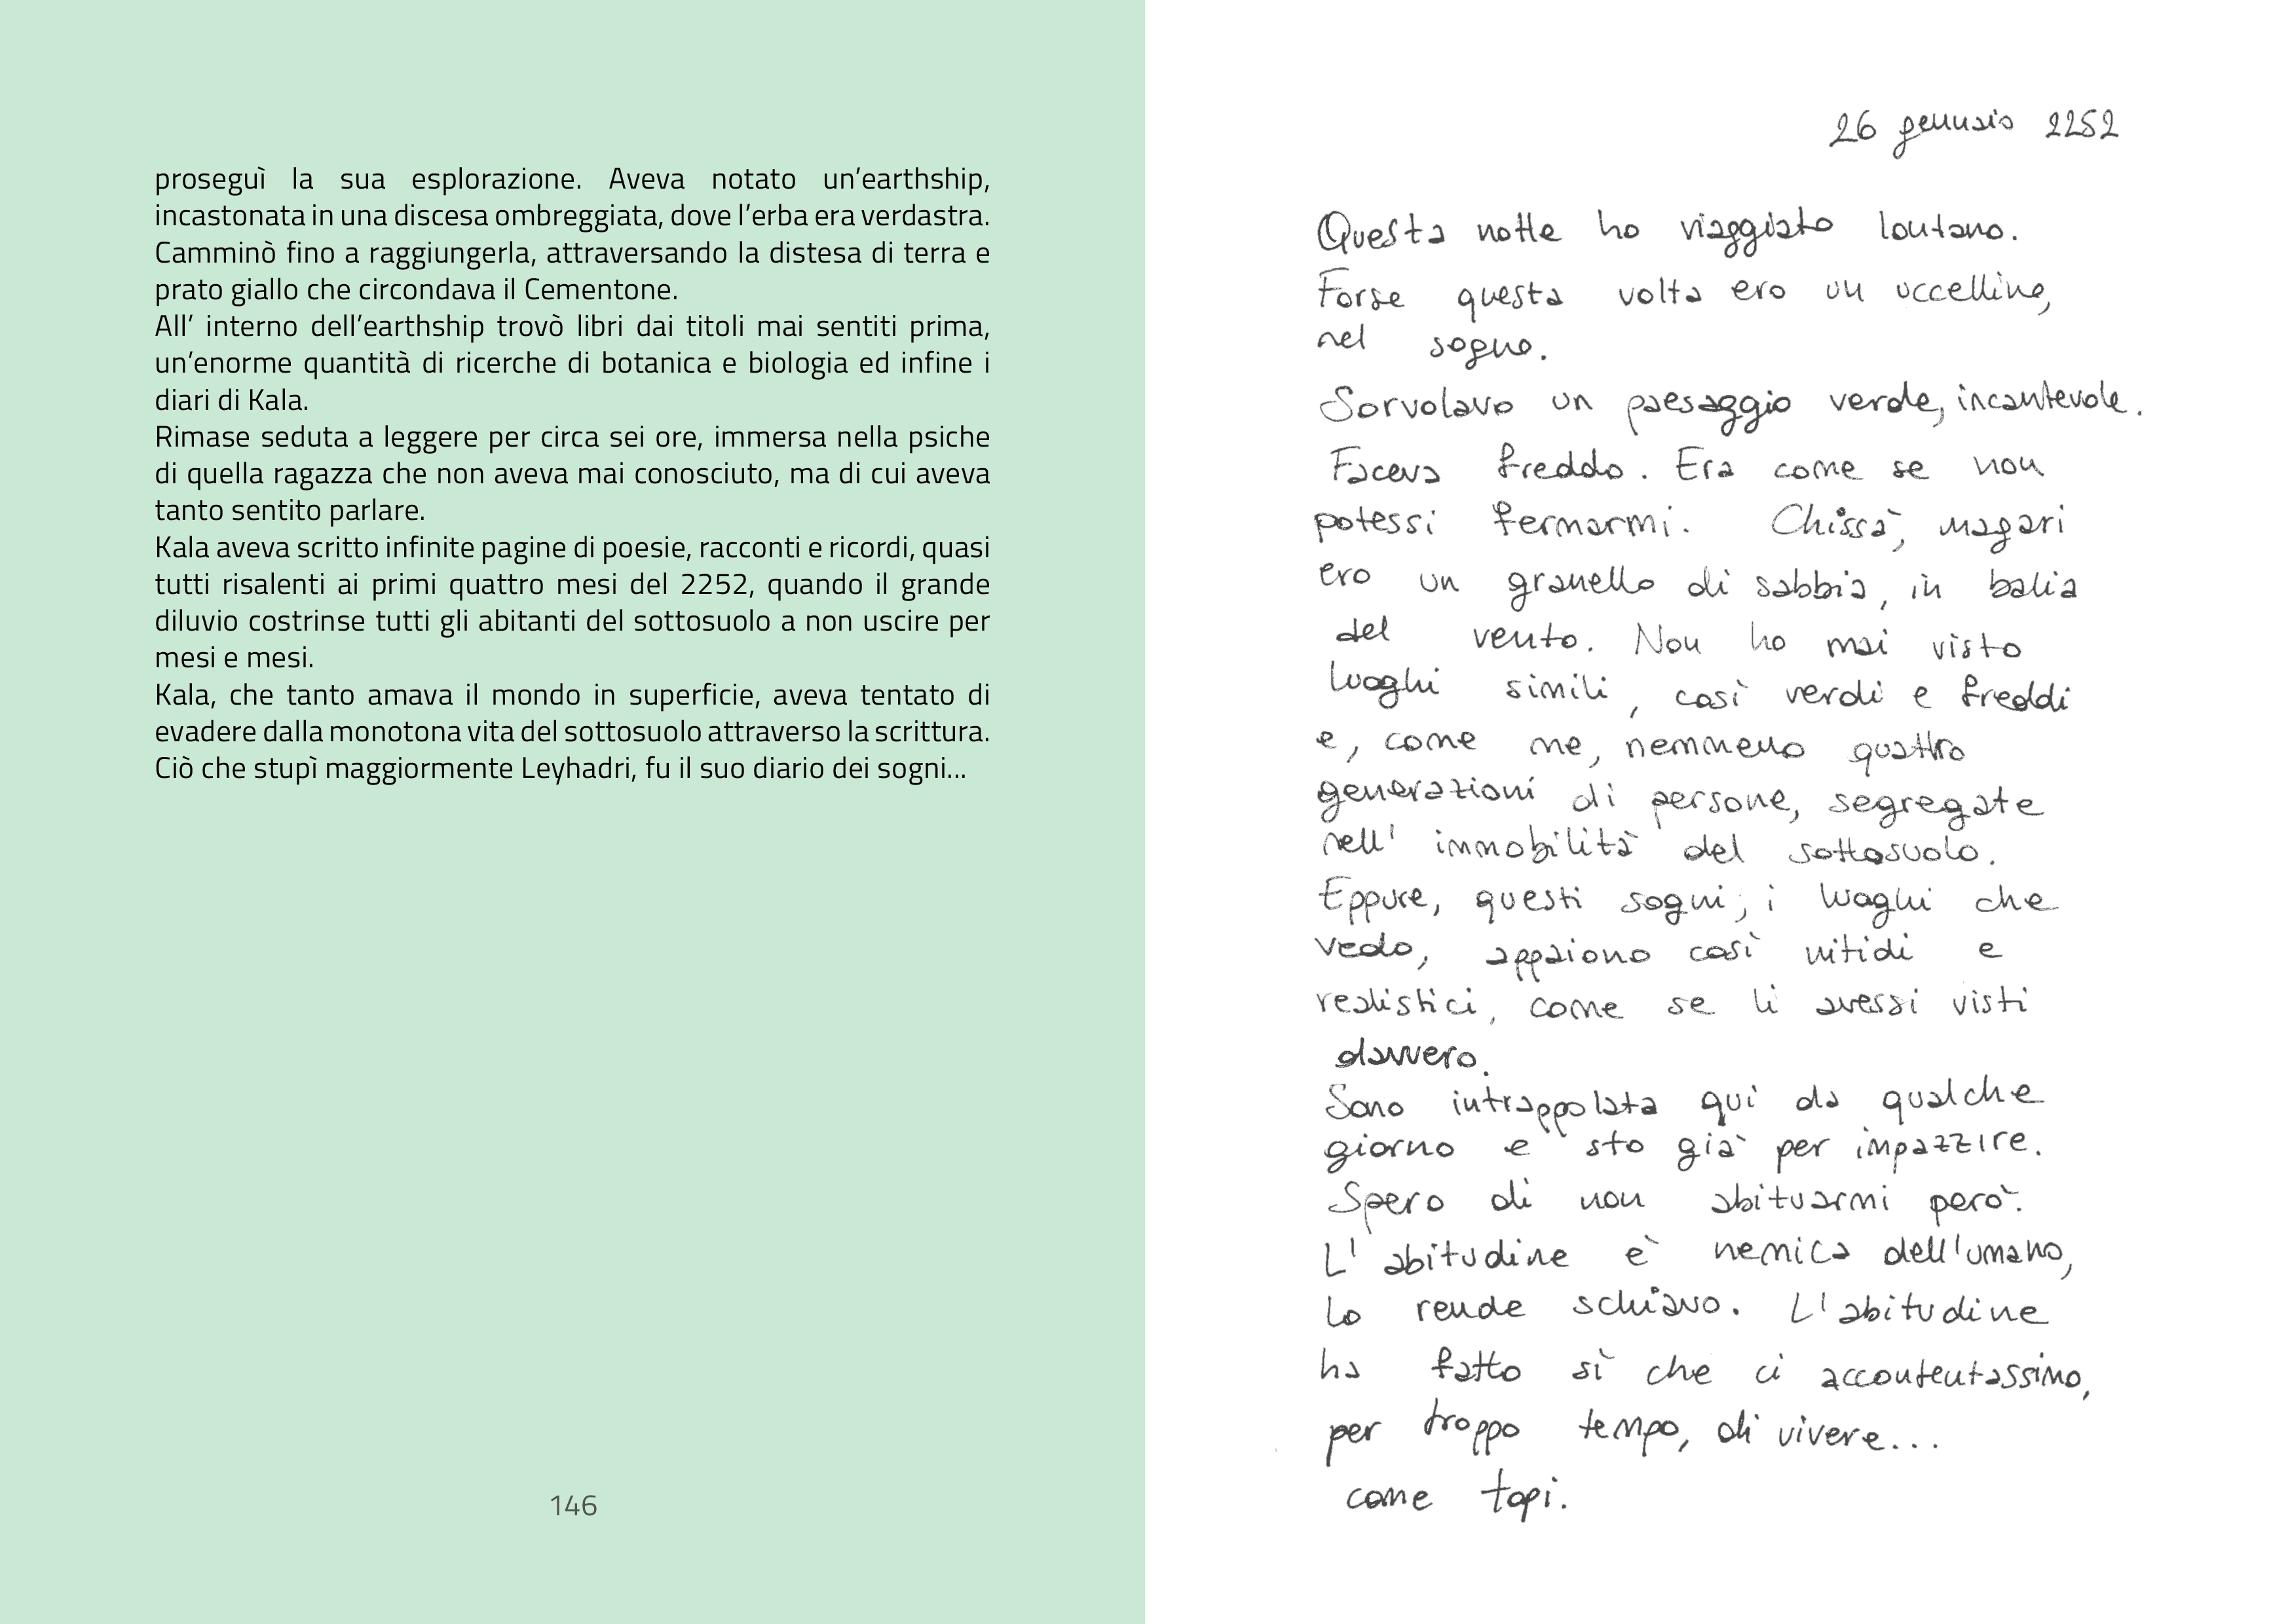 proseguì la sua esplorazione. Aveva notato un’earthship,
incastonata in una discesa ombreggiata, dove l’erba era verdastra.
Camminò fino a raggiungerla, attraversando la distesa di terra e
prato giallo che circondava il Cementone.
All’ interno dell’earthship trovò libri dai titoli mai sentiti prima,
un’enorme quantità di ricerche di botanica e biologia ed infine i
diari di Kala.
Rimase seduta a leggere per circa sei ore, immersa nella psiche
di quella ragazza che non aveva mai conosciuto, ma di cui aveva
tanto sentito parlare.
Kala aveva scritto infinite pagine di poesie, racconti e ricordi, quasi
tutti risalenti ai primi quattro mesi del 2252, quando il grande
diluvio costrinse tutti gli abitanti del sottosuolo a non uscire per
mesi e mesi.
Kala, che tanto amava il mondo in superficie, aveva tentato di
evadere dalla monotona vita del sottosuolo attraverso la scrittura.
Ciò che stupì maggiormente Leyhadri, fu il suo diario dei sogni...
146
26 gennaio 2252
Questa notte ho viaggiato lontano.
Forse questa volta ero un uccellino,
nel sogno.
Sorvolavo un paesaggio verde, incantevole.
Faceva freddo. Era come se non
potessi fermarmi. Chissà, magari
ero un granello di sabbia, in balia
del vento. Non ho mai visto
luoghi simili, così verdi e freddi
e, come me, nemmeno quattro
generazioni di persone, segregate
nell' immobilità del sottosuolo.
Eppure, questi sogni, i luoghi che
vedo, appaiono così nitidi e
realistici, come se li avessi visti
davvero.
Sono intrappolata qui da qualche
giorno e sto già per impazzire.
Spero di non abituarmi però.
L' abitudine è nemica dell'umano,
lo rende schiavo. L'abitudine
ha fatto sì che ci accontentassimo,
per troppo tempo, di vivere...
come topi.